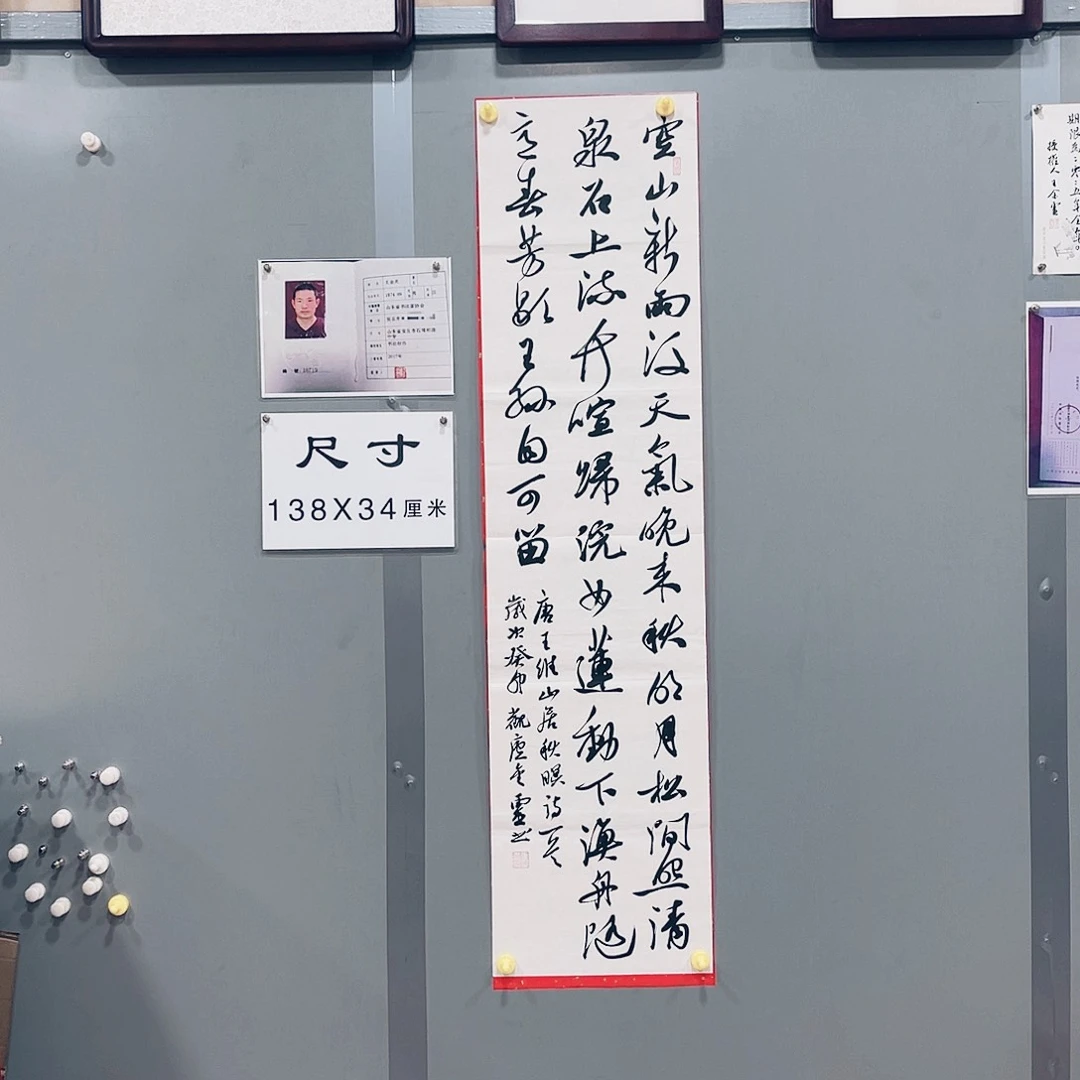 空山新雨後天氣晚来秋明月松間照清
泉石上流竹喧歸浣女蓮動下漁舟随
意春芳歇王孫自可留
唐王維山居秋暝詩一首
歲次癸卯
尺寸
138X34厘米
授權人王金靈